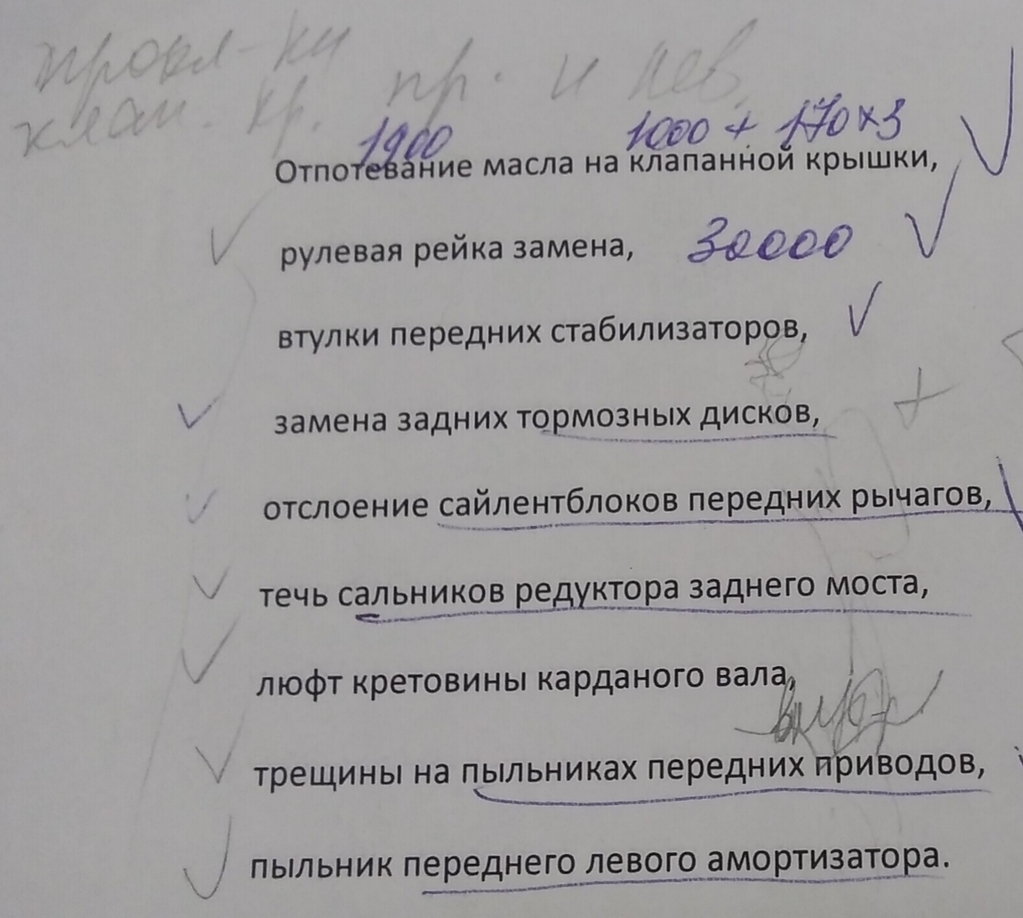 клап. кр. пр. и лев.
1900 1000 + 170×3
Отпотевание масла на клапанной крышки,
рулевая рейка замена, 30000
втулки передних стабилизаторов,
замена задних тормозных дисков,
отслоение сайлентблоков передних рычагов,
течь сальников редуктора заднего моста,
люфт кретовины карданого вала,
трещины на пыльниках передних приводов,
пыльник переднего левого амортизатора.